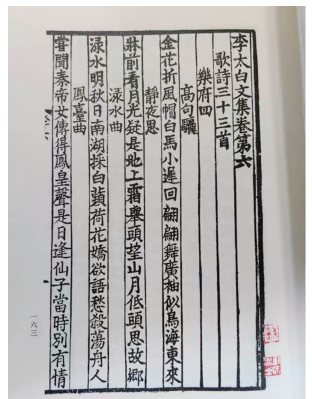 李太白文集卷第六
歌詩三十三首
樂府四
高句驪
金花折風帽白馬小遲回翩翩舞廣袖似鳥海東來
靜夜思
牀前看月光疑是地上霜舉頭望山月低頭思故鄉
淥水曲
淥水明秋日南湖採白蘋荷花嬌欲語愁殺湯舟人
鳳臺曲
嘗聞秦帝女傳得鳳皇聲是日逢仙子當時別有情
一六三